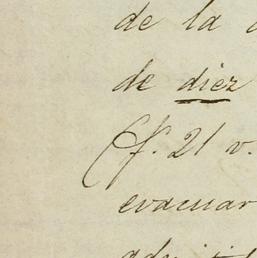 de la
de diez
(f. 21 v.
evacuar